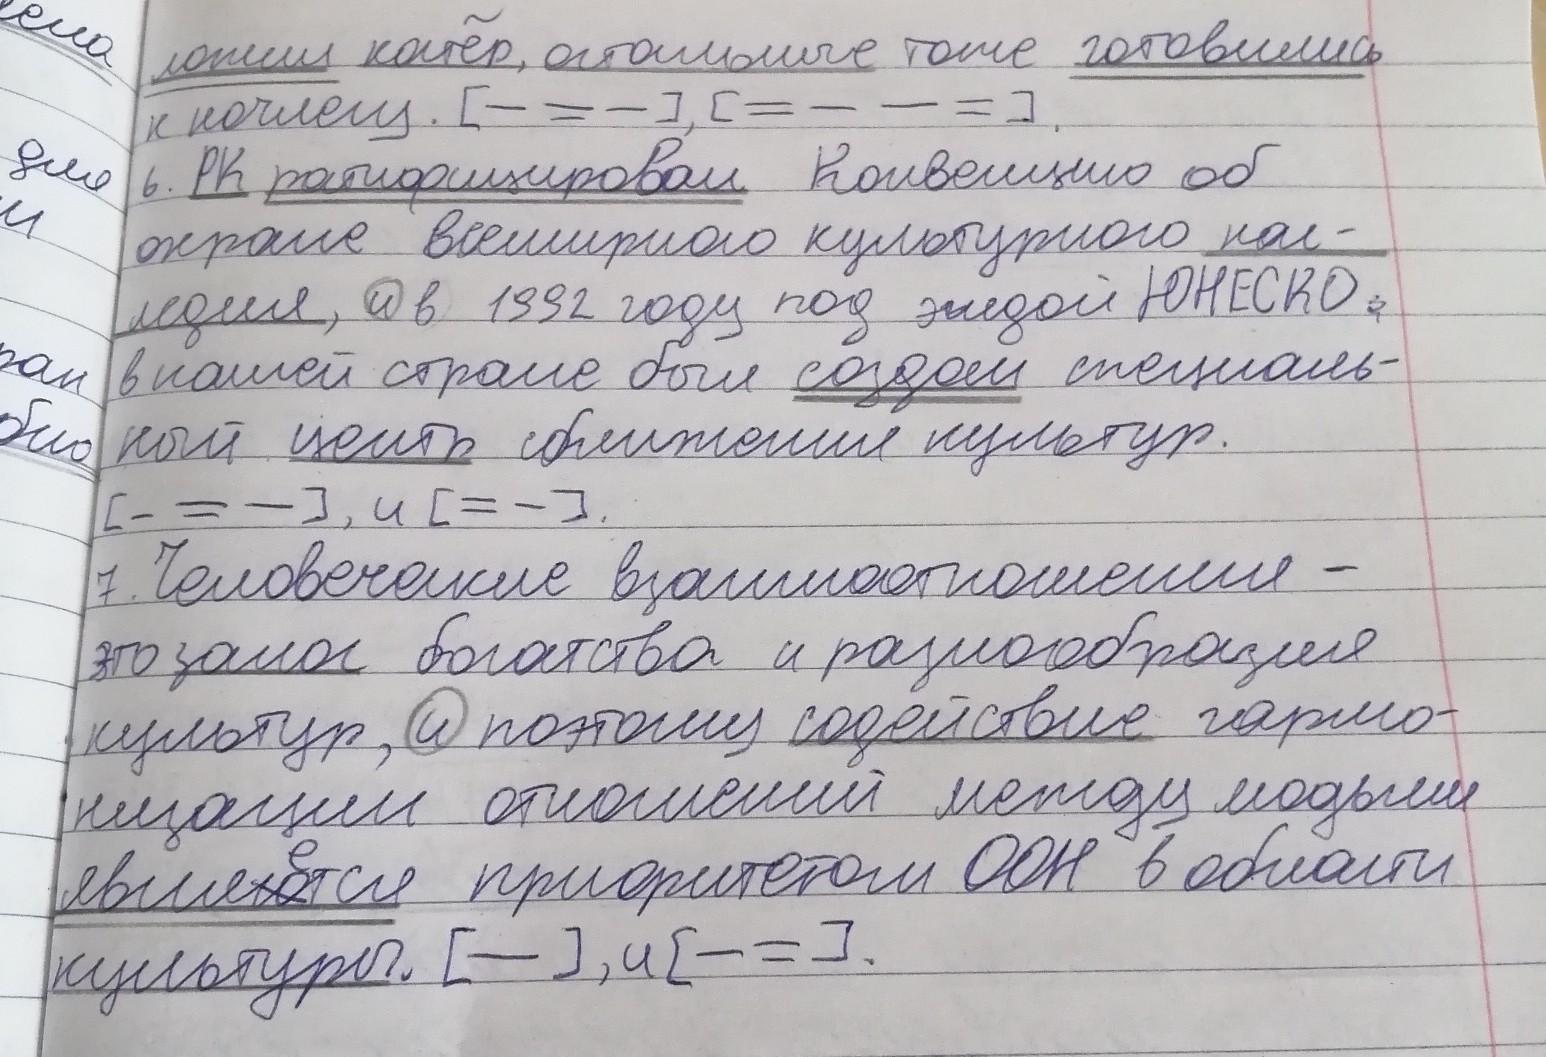 ема
ложил костёр, остальные тоже готовились
к ночлегу. [— = —], [= — — =].
для
6. РК ратифицировал Конвенцию об
и
охране всемирного культурного нас-
ледия, и в 1992 году под эгидой ЮНЕСКО
в нашей стране был создан специаль-
ный центр сближения культур.
[- = —], и [= -].
7. Человеческие взаимоотношения –
это залог богатства и разнообразия
культур, и поэтому содействие гармо-
низации отношений между людьми
является приоритетом ООН в области
культуры. [—], и [— =].